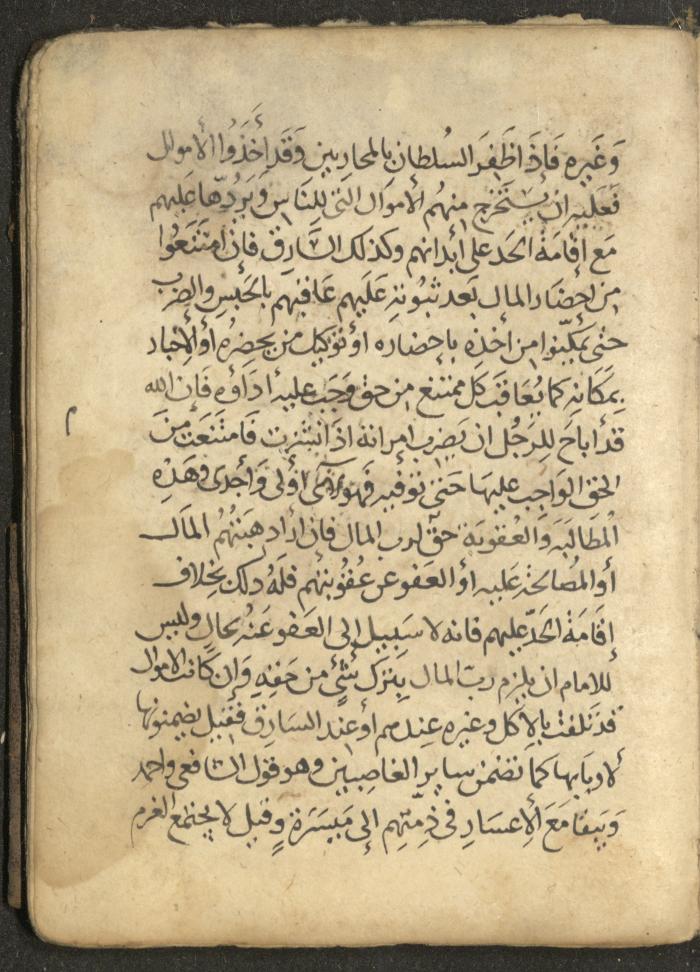 وَغَيره فَإذَا ظَفِرَ السُلطان بالمحاربين وَقَد أَخَذُوا الأموال
فَعَليه ان يُستخرج منهُم الأموَال التى لِلنَاسِ وَيَرُدّهَا عَلَيهم
مَع إقامَة الحَد على أبدانهم وكذلك السَّارِق فَإن امتَنَعُوا
من إحضَار المال بَعد ثبُوتِه عَلَيهم عَاقبهم بالحَبس والضرب
حتى يمكِّنوا من أخذِه بإحضاره أو توكيل من يحضِره أو الإخبار
بِمَكَانِه كما يُعَاقَبَ كل ممتنع من حق وَجَبَ عليه أدَاؤه فَإن الله
قد أباحَ للرَجُل ان يَضرب امراته اذَا نشزت فَامتَنَعَت مِنَ
الحق الوَاجب عليهَا حَتى توَفيه فهولاَء أولى وَأجدى وهَذِه
المُطَالَبَه وَالعُقوبَة حقّ لرب المال فان ارَاد هبَتهُم المَال
أو المُصَالحَة عَليه أو العَفو عن عُقُوبتهم فلَهُ ذلك بخِلاف
إقَامَة الحَدّ عليهم فانه لا سَبيل إلى العَفو عَنهُ بحَال وليس
للامام ان يلزم ربّ المال بِترك شَئٍ من حَقهِ وَإن كَانت الاموال
قد تَلفت بالأكل وغيره عِندهم أو عند السَارِق فقيل يضمنونها
لأربابها كما يَضمَن ساير الغاصِبين وهو قَول الشافعى واحمد
وَيَبقا مَعَ الإعسَار فى ذِمتِهم إلى مَيسَرَةٍ وقيل لا يجتمع الغرم